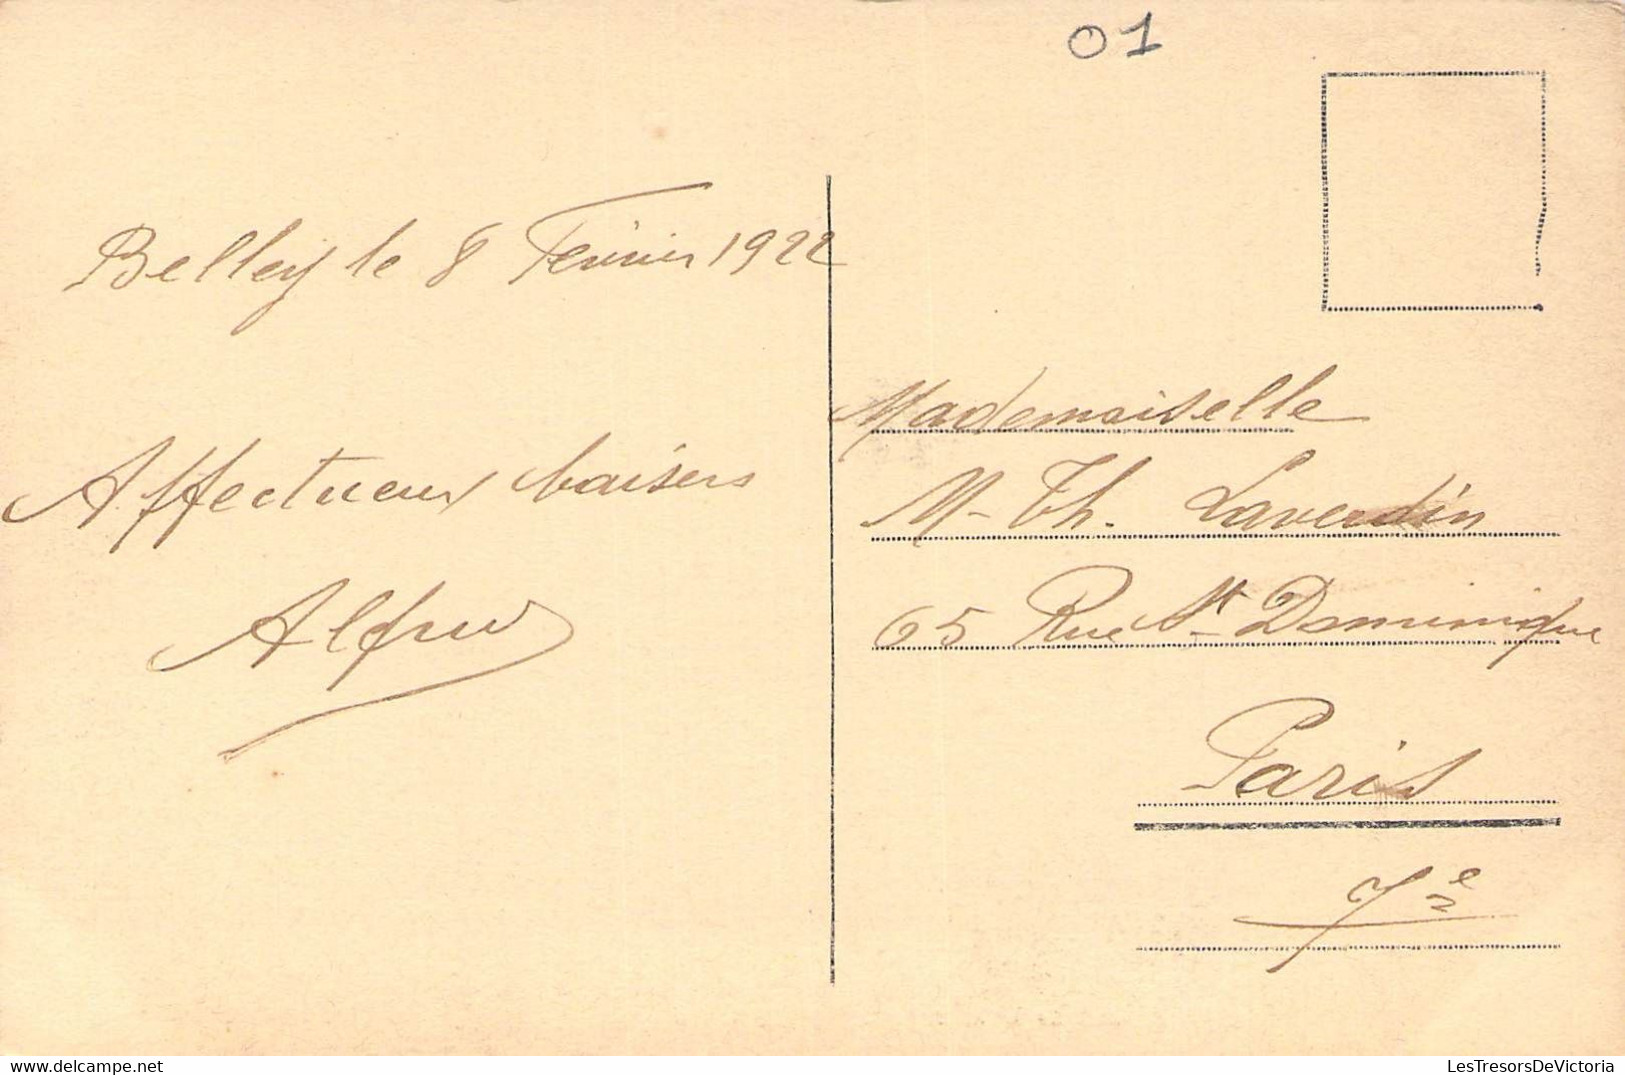 01
Belley le 8 Février 1922
Affectueux baisers
Alfred
Mademoiselle
M-Th. Laverdin
65 Rue St Dominique
Paris
7e
LesTresorsDeVictoria